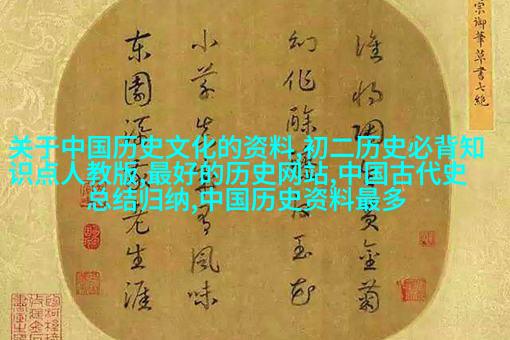 关于中国历史文化的资料,初二历史必背知
识点人教版,最好的历史网站,中国古代史
总结归纳,中国历史资料最多
宗御筆草書七絕
誰將陶金菊
幻作酴醾玉花
小草真成有風味
東園添我老生涯